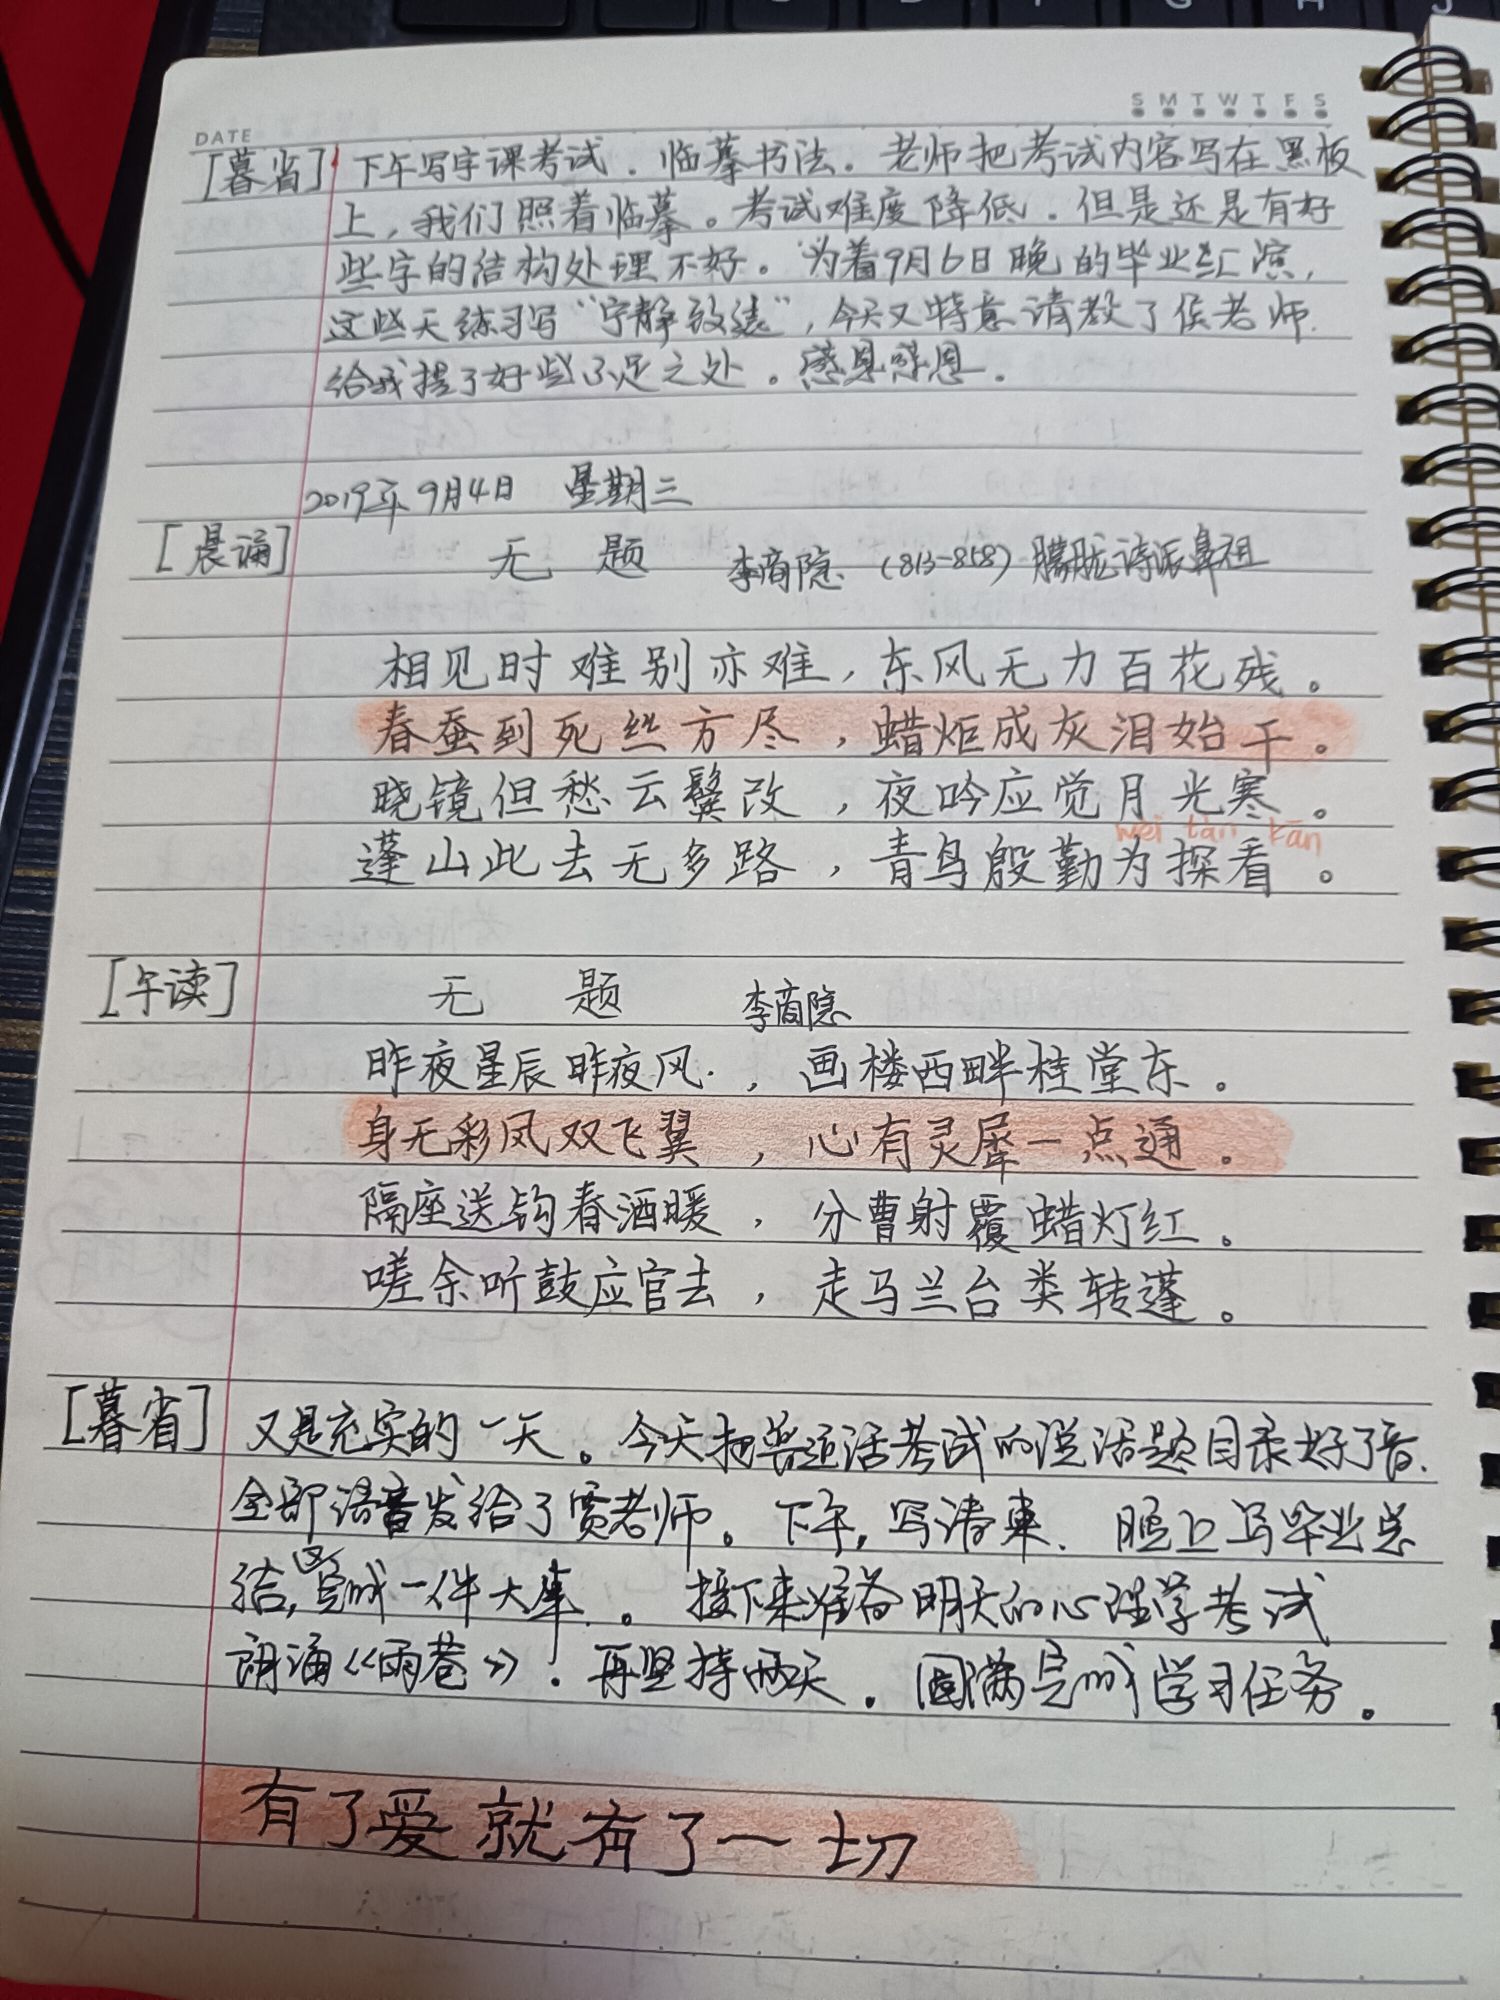 DATE
S M T W T F S
[暮省] 下午写字课考试.临摹书法.老师把考试内容写在黑板
上,我们照着临摹。考试难度降低.但是还是有好
些字的结构处理不好。为着9月6日晚的毕业汇演,
这些天练习写“宁静致远”,今天又特意请教了侯老师.
给我提了好些不足之处。感恩感恩.
2019年9月4日 星期三
[晨诵] 无 题 李商隐 (813-858) 朦胧诗派鼻祖
相见时难别亦难,东风无力百花残。
春蚕到死丝方尽,蜡炬成灰泪始干。
晓镜但愁云鬓改,夜吟应觉月光寒。
wèi tàn kān
蓬山此去无多路,青鸟殷勤为探看。
[午读] 无 题 李商隐
昨夜星辰昨夜风.,画楼西畔桂堂东。
身无彩凤双飞翼,心有灵犀一点通。
隔座送钩春酒暖,分曹射覆蜡灯红。
嗟余听鼓应官去,走马兰台类转蓬。
[暮省] 又是充实的一天。今天把普通话考试的说话题目录好了音.
全部语音发给了贾老师。下午,写请柬.晚上写毕业总
结,又完成一件大事.。接下来准备明天的心理学考试
朗诵《雨巷》!再坚持两天.圆满完成学习任务。
有了爱就有了一切